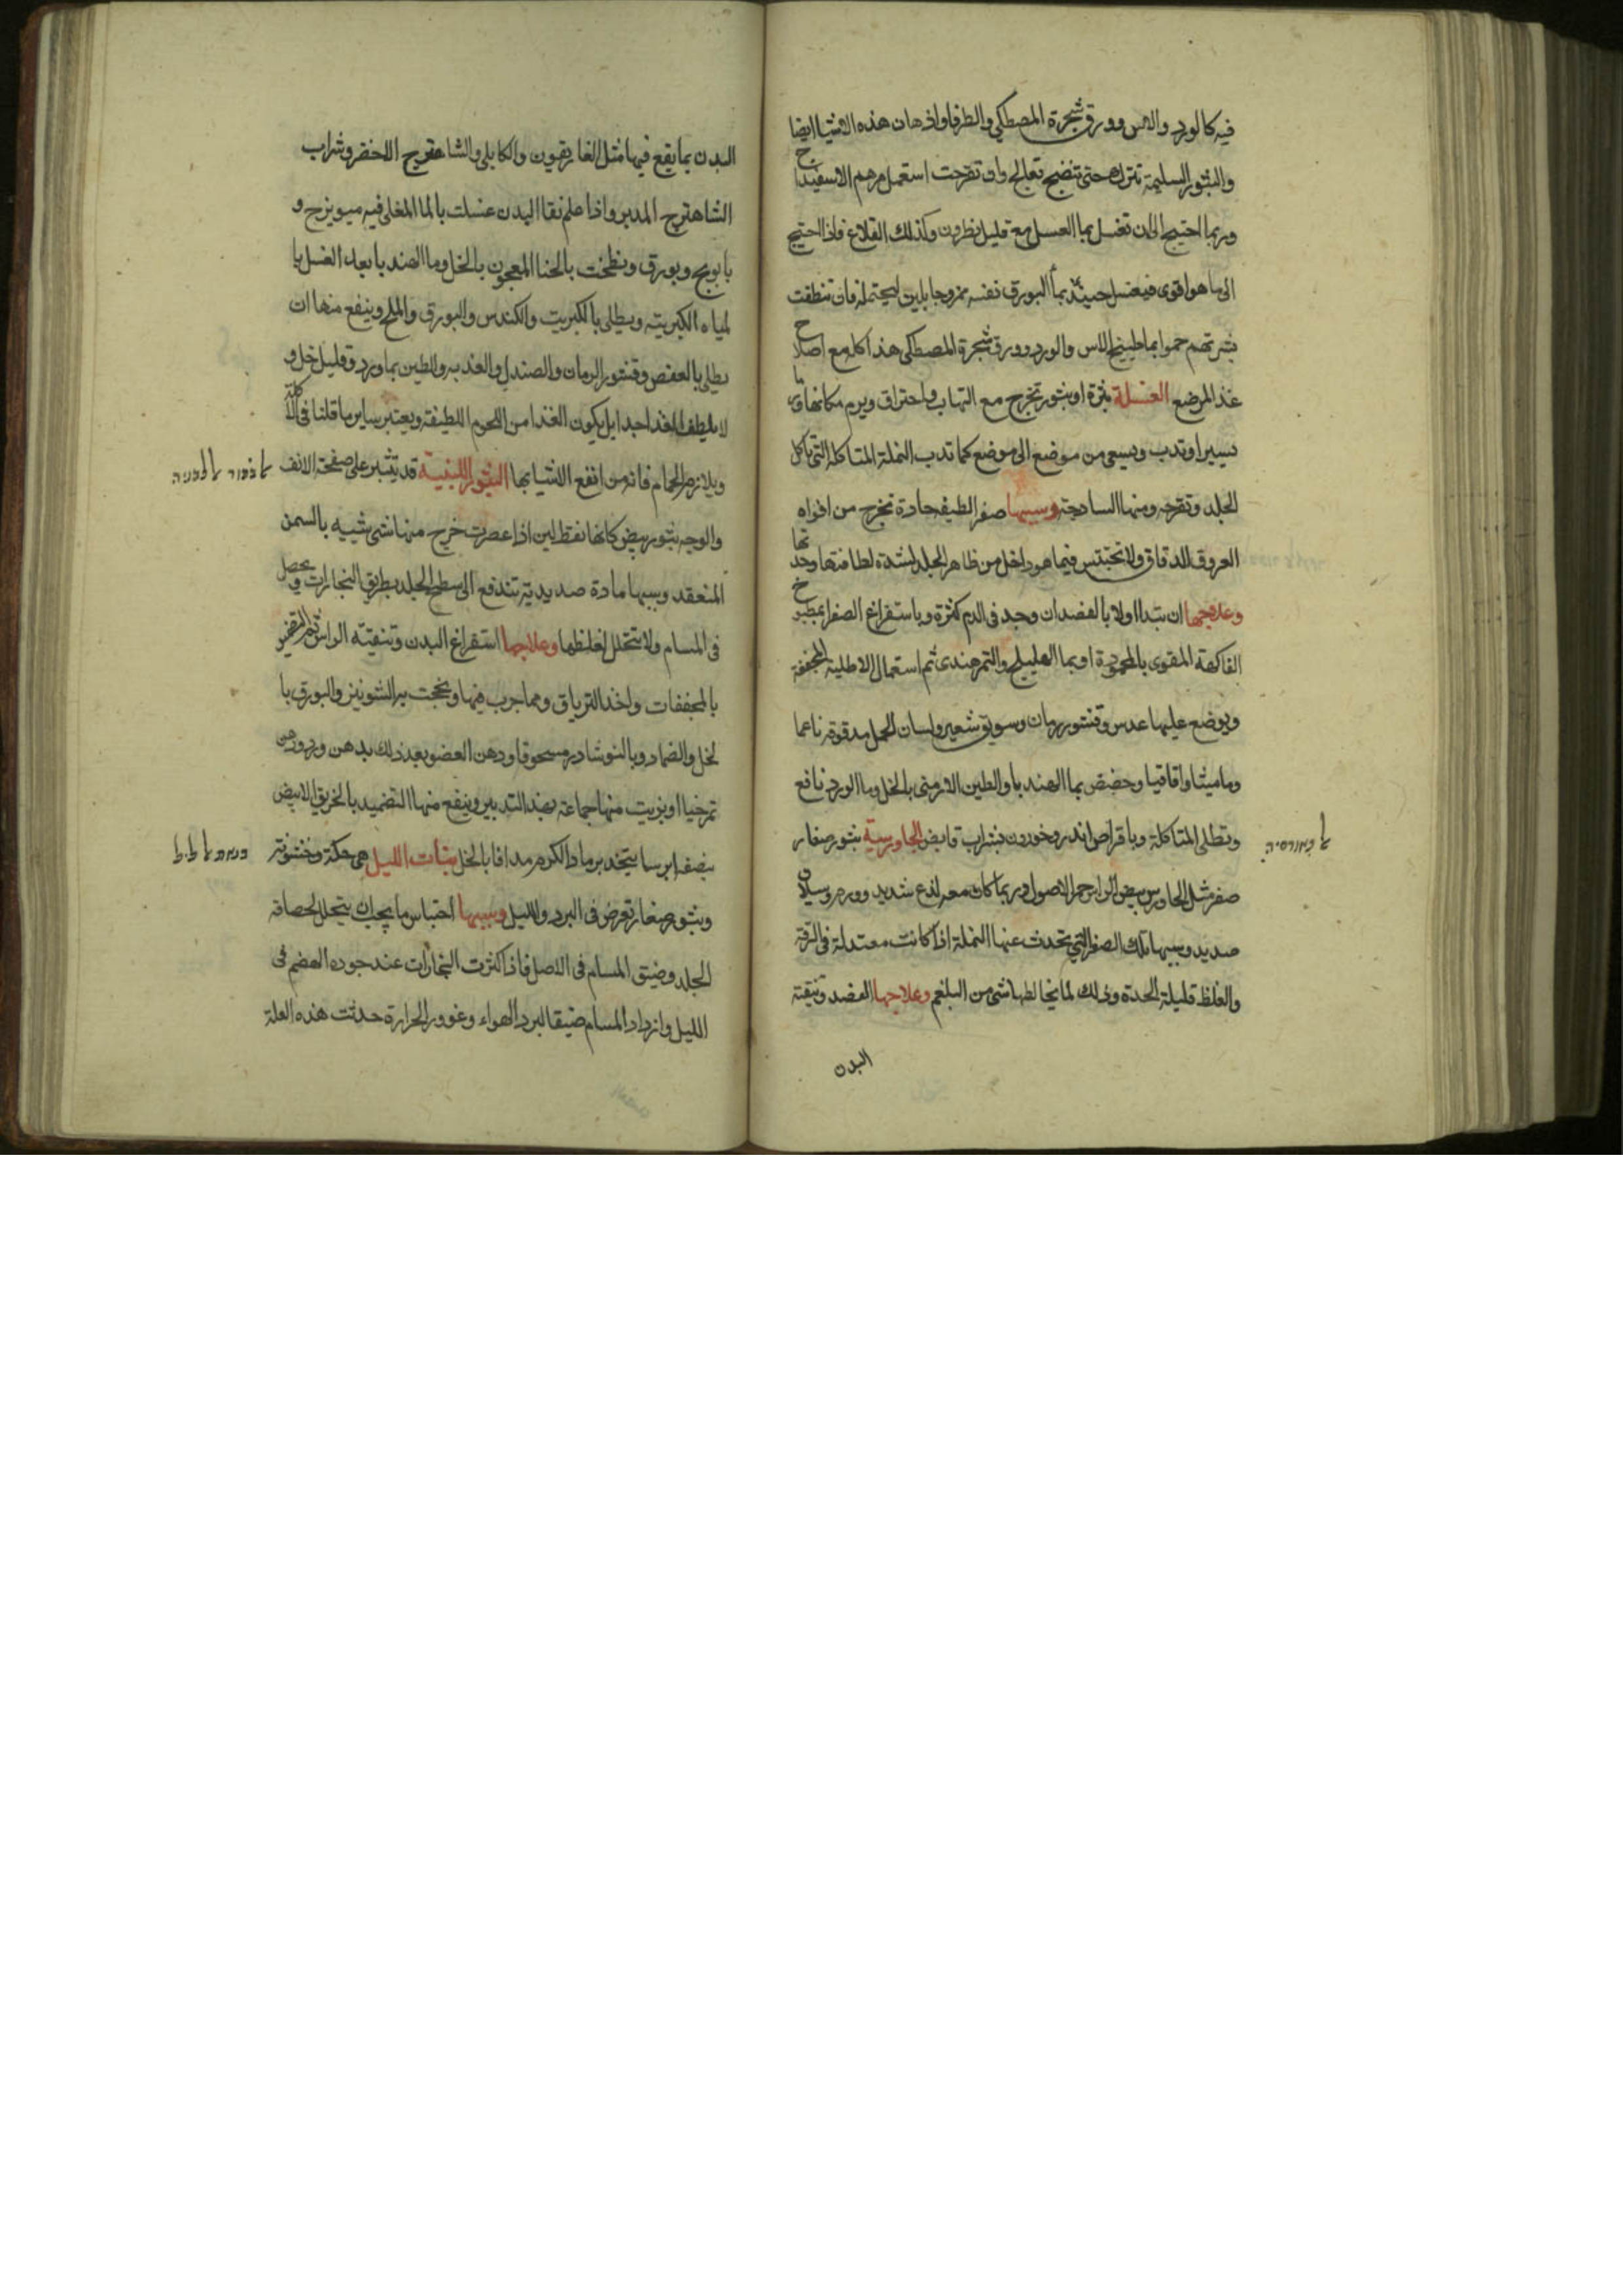 فيه كالورد والاس وورق شجرة المصطكي والطرفا واذهان هذه الاشيا ايضا
والبثور السليمة تترك حتى تنضج تعالج وان تقرحت استعمل مرهم الاسفيداج
وربما احتيج الى ان تغسل بما العسل مع قليل نطرون وكذلك القلاع فاذا احتيج
الى ما هو اقوى فيغسل حينئذ بما البورق نفسه ممزوجا بلبن ليحتمله فان تنظفت
بشرتهم حموا بما طبيخ الاس والورد وورق شجرة المصطكى هذا كله مع اصلاح
غذا المرضع النملة بثرة او بثور تخرج مع التهاب واحتراق ويرم مكانها ورما
يسيرا وتدب وتسعى من موضع الى موضع كما تدب النملة المتاكلة التى تاكل
الجلد وتقرحه ومنها الساذجة وسببها صفرا لطيفة حادة تخرج من افواه
العروق الدقاق ولا تحتبس فيما هو داخل من ظاهر الجلد لشدة لطافتها وحدتها
وعلاجها ان تبدا اولا بالفصد ان وجد فى الدم كثرة وباستفراغ الصفرا بمطبوخ
الفاكهة المقوى بالمحمودة او بما الهليلج والتمر هندى ثم استعمال الاطلية المجففة
ويوضع عليها عدس وقشور رمان وسويق شعير ولسان الحمل مدقوقة ناعما
وماميثا واقاقيا وحضض بما الهندبا والطين الارمنى بالخل وما الورد نافع
وتطلى المتاكلة وباقراص اندروخورون بشراب قابض الجاورسية بثور صغار
صفر مثل الجاورس بيض الراس حمر الاصول وربما كان معه لذع شديد وورم وسيلان
صديد وسببها تلك الصفرا التي تحدث عنها النملة اذا كانت معتدلة فى الرقة
والغلظ قليلة الحدة وذلك لما يخالطها شى من البلغم وعلاجها الفصد وتنقية
البدن
البدن بما يقع فيها مثل الغاريقون والكابلى والشاهترج الاخضر وشراب
الشاهترج المدبر واذا علم نقا البدن غسلت بالما المغلى فيه ميويزج و
بابونج وبورق ولطخت بالحنا المعجون بالخل وما الهندبا بعد الغسل با
لمياه الكبريتية ويطلى بالكبريت والكندس والبورق والملح وينفع منها ان
يطلى بالعفص وقشور الرمان والصندل والطين بماورد وقليل خل و
لا يلطف الغذا جدا بل يكون الغذا من اللحوم اللطيفة ويعتبر ساير ما قلنا فى الاكلة
ويلازم الحمام فانه من انفع الاشيا بها البثور اللبنية قد يبثر على صفحة الانف
والوجه بثور بيض كانها نقط لبن اذا عصرت خرج منها شى شبيه بالسمن
المنعقد وسببها مادة صديدية تندفع الى سطح الجلد بطريق البخارات وتحصل
فى المسام ولا تتحلل لغلظها وعلاجها استفراغ البدن وتنقية الراس ثم التضميد
بالمجففات واخذ الترياق ومما جرب فيها ونجحت به الشونيز والبورق با
لخل والضماد وبالنوشادر مسحوقا ودهن العضو بعد ذلك بدهن ورد ودهن
او بزيت منها جماعة بهذا التدبير وينفع منها التضميد بالخربق الابيض
بنصفه ايرسا يتخذ برماد الكرم مدافا بالخل بنات الليل هى حكة وخشونة
وبثور صغار تعرض فى البرد والليل وسببها احتباس ما يجب ان يتحلل لحصافة
الجلد وضيق المسام فى الاصل فاذا كثرت البخارات عند جودة الهضم فى
الليل وازداد المسام ضيقا لبرد الهواء وغوور الحرارة حدثت هذه العلة